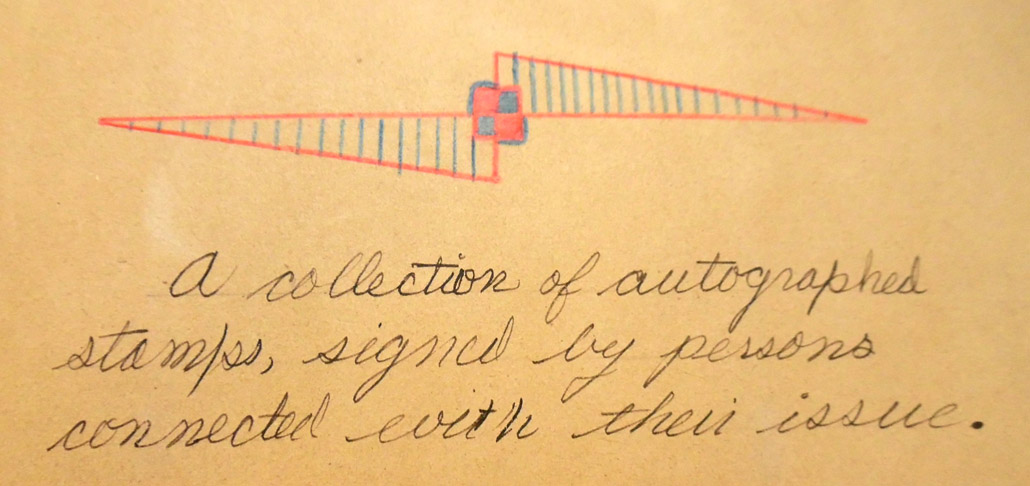 A collection of autographed
stamps, signed by persons
connected with their issue.